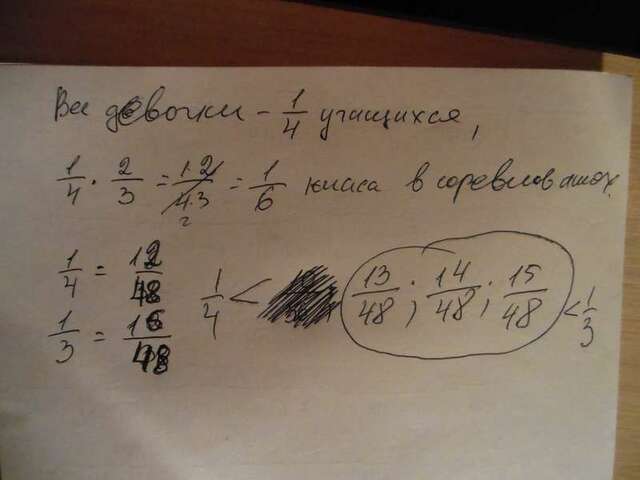 Все девочки - 1/4 учащихся,
1/4 · 2/3 = 1·2/4·3 = 1/6 класса в соревнованиях.
2
1/4 = 12/48
1/3 = 16/48
1/4 < 13/48; 14/48; 15/48 < 1/3